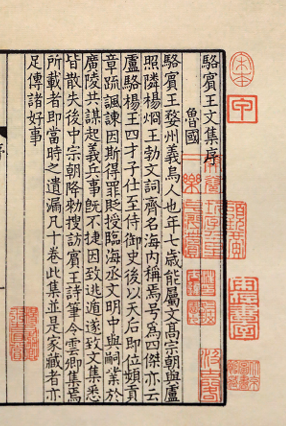 駱賓王文集序
魯國
駱賓王婺州義烏人也年七歲能屬文高宗朝與盧
照隣楊烱王勃文詞齊名海内稱焉号為四傑亦云
盧駱楊王四才子仕至侍御史後以天后即位頻貢
章疏諷諫因斯得罪貶授臨海丞文明中與嗣業於
廣陵共謀起義兵事旣不捷因致逃遁遂致文集悉
皆散失後中宗朝降勑搜訪賓王詩筆令雲卿集焉
所載者即當時之遺漏凡十卷此集並是家藏者亦
足傳諸好事